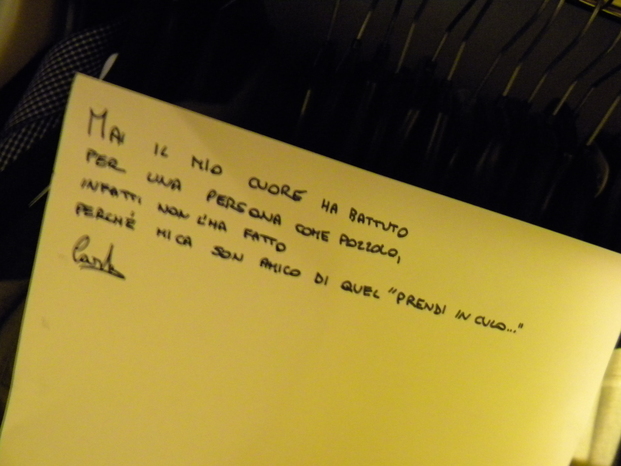 MAI IL MIO CUORE HA BATTUTO
PER UNA PERSONA COME POZZOLO,
INFATTI NON L'HA FATTO
PERCHÉ MICA SON AMICO DI QUEL "PRENDI IN CULO..."